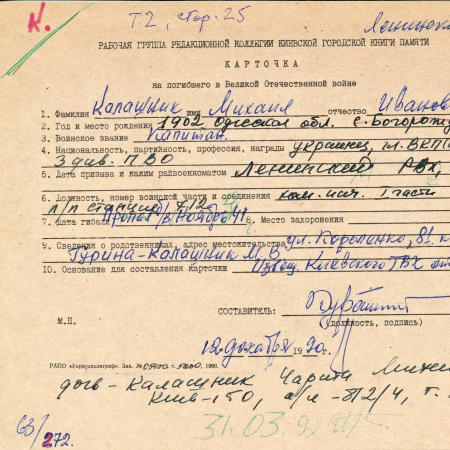 К.
Т.2, стр. 25
Ленинск
РАБОЧАЯ ГРУППА РЕДАКЦИОННОЙ КОЛЛЕГИИ КИЕВСКОЙ ГОРОДСКОЙ КНИГИ ПАМЯТИ
КАРТОЧКА
на погибшего в Великой Отечественной войне
1. Фамилия Калашник имя Михаил отчество Иванов
2. Год и место рождения 1902 Одесская обл. с. Богорожд
3. Воинское звание Капитан
4. Национальность, партийность, профессия, награды украинец, чл. ВКП
3 див. ПВО
5. Дата призыва и каким райвоенкоматом Ленинский РВК,
6. Должность, номер воинской части и соединения ком. 1 части
п/п станция 712
7. Дата гибели Пропал в ноябре 41 г. 8. Место захоронения
9. Сведения о родственниках, адрес местожительства ул. Короленко, 81, к
Гурина-Калашник М. В.
10. Основание для составления карточки Извещ. Киевского ГВК от
СОСТАВИТЕЛЬ:
М.П. (должность, подпись)
12 декабря 1990г.
РАПО «Укрвузполиграф». Зак. № 0400 т. 5000, 1990.
дочь - Калашник Михай
Киев-150, а/я -812/4, т.
31.03.92
63/272.